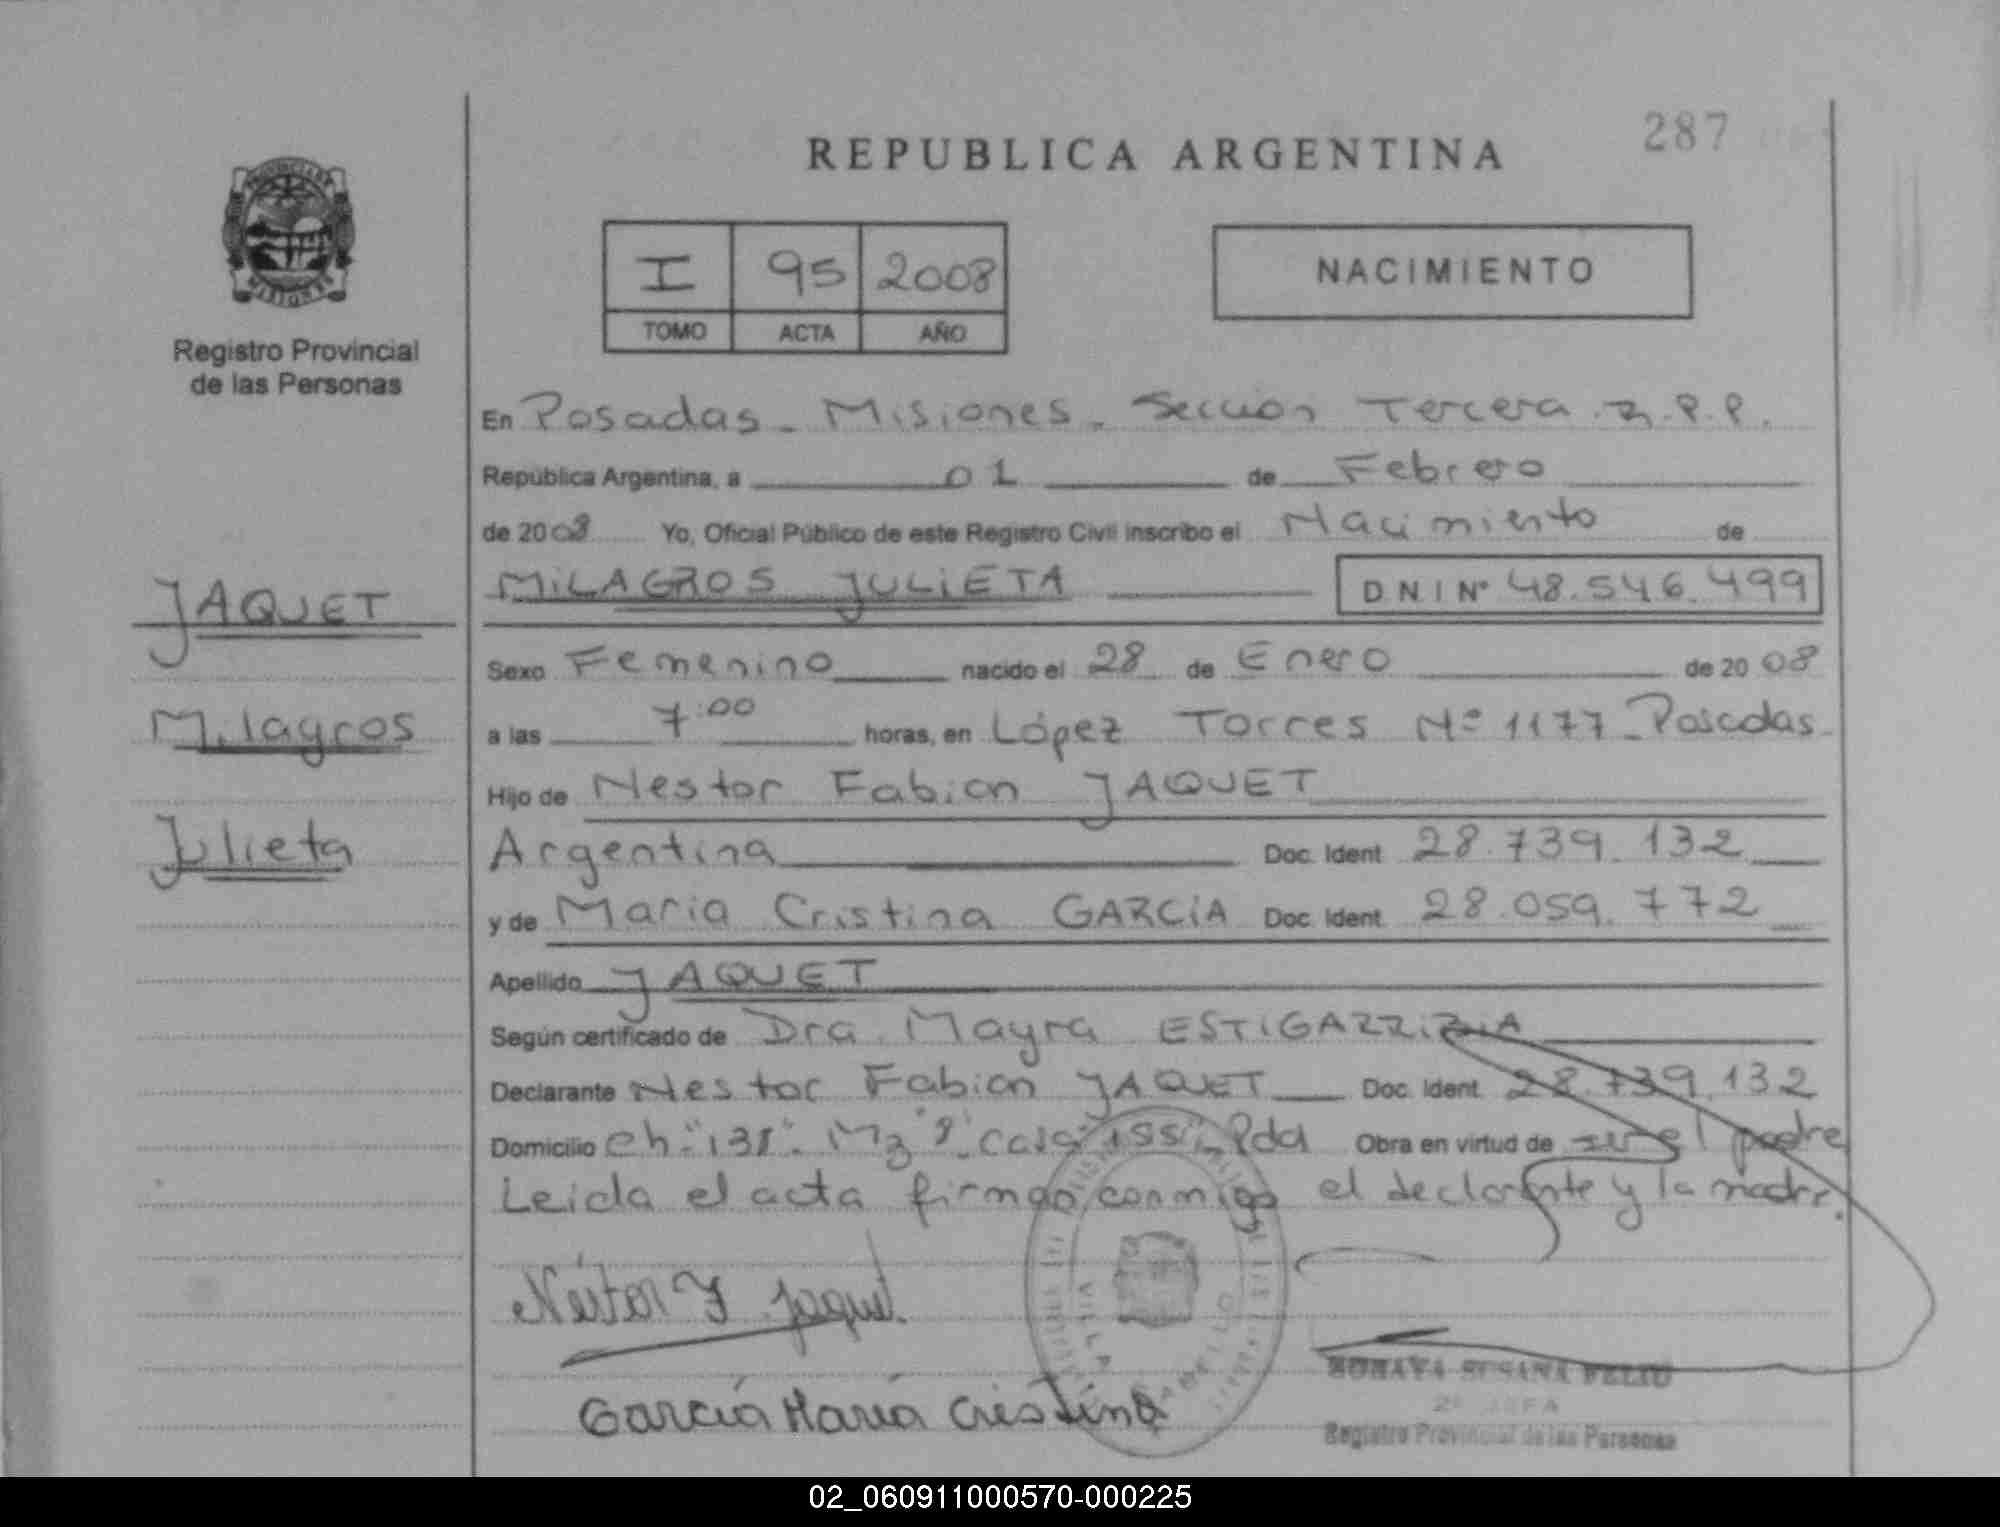 287
REPUBLICA ARGENTINA
PROVINCIA DE
MISIONES
Registro Provincial
de las Personas
I 95 2008
TOMO ACTA AÑO
NACIMIENTO
En Posadas - Misiones - Sección Tercera R.P.P.
República Argentina, a 01 de Febrero
de 2008 Yo, Oficial Público de este Registro Civil inscribo el Nacimiento de
MILAGROS JULIETA DNI Nº 48.546.499
JAQUET
Milagros
Julieta
Sexo Femenino nacido el 28 de Enero de 2008
a las 7:00 horas, en López Torres Nº 1177 - Posadas
Hijo de Nestor Fabian JAQUET
Argentina Doc. Ident. 28.739.132
y de Maria Cristina GARCIA Doc. Ident. 28.059.772
Apellido JAQUET
Según certificado de Dra. Mayra ESTIGARRIBIA
Declarante Nestor Fabian JAQUET Doc. Ident. 28.739.132
Domicilio Ch. "131". Mz "8". Casa Pda Obra en virtud de ser el padre
Leida el acta firman conmigo el declarante y la madre.
Néstor F Jaquet.
García María Cristina
VILLA CABELLO
SORAYA SUSANA FELIU
2º JEFA
Registro Provincial de las Personas
02_060911000570-000225